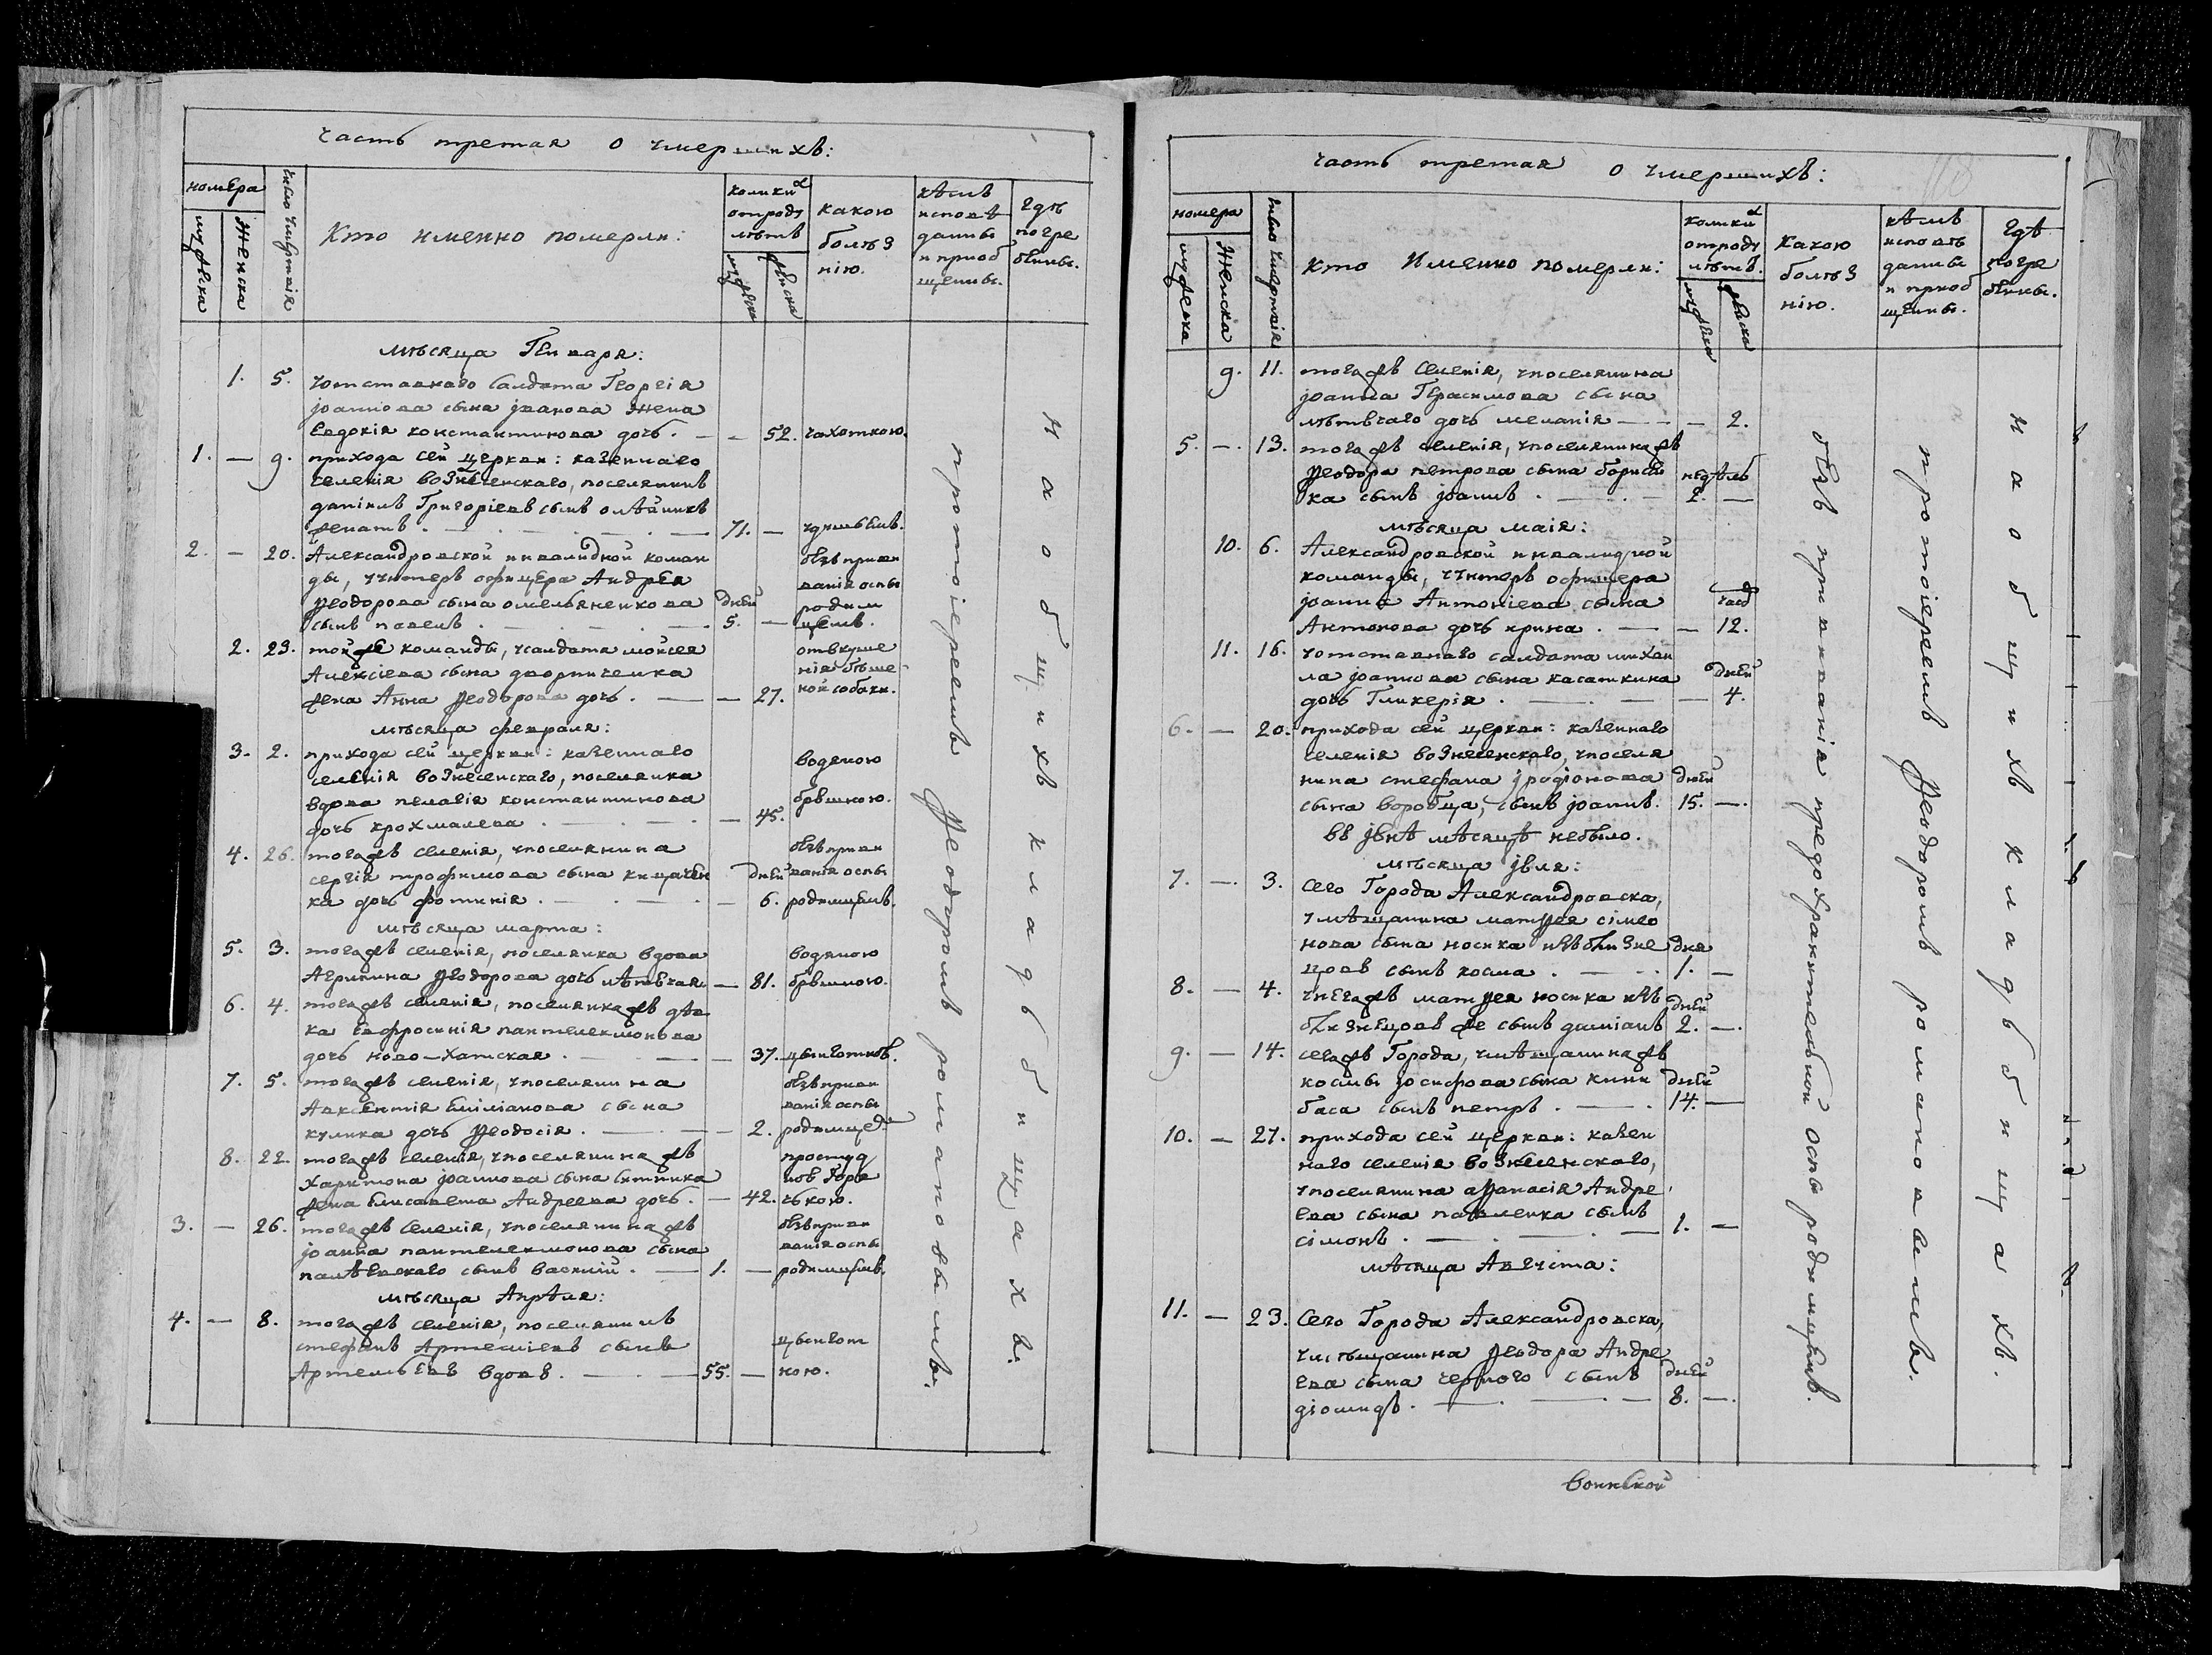 часть третая о умершихъ:
номера
мужеска
женска
число умертвія
Кто именно померли:
коликихъ
отроду
лѣтъ
мужеска
женска
какою
болѣз
нію.
кѣмъ
исповѣ
даны
и приоб
щены.
гдѣ
погре
бены.
мѣсяца Генваря:
1. 5. уотставнаго салдата Георгія
іоаннова сына јванова жена
Евдокія константинова дочь. — — 52. чахоткою.
1. — 9. прихода сей церкви: казеннаго
селенія вознесенскаго, поселянинъ
даніилъ Григоріевъ сынъ олѣйникъ
женатъ. — 71. — удушьемъ.
2. — 20. Александровской инвалидной коман
ды, уунтеръ офицера Андрея
Ѳеодорова сына омельяненкова
сынъ павелъ. — дней 5. —
безъ приви
ванія оспы
родим
цемъ.
2. 23. тойже команды, усалдата мойсея
Алексіева сына дворниченка
жена Анна Ѳеодорова дочь. — — 27.
отвкуше
нія бѣше
ной собаки.
мѣсяца февраля:
3. 2. прихода сей церкви: казеннаго
селенія вознесенскаго, поселянка
вдова пелагія константинова
дочь крохмалева. — — 45.
водяною
брюшною.
4. 26. тогожъ селенія, упоселянина
сергія трофимова сына
ка дочь фотинія. — дней 6.
безъ приви
ванія оспы
родимцемъ.
мѣсяца марта:
5. 3. тогожъ селенія, поселянка вдова
Агрипина Ѳеодорова дочь лѣтвчая — 81.
водяною
брюшною.
6. 4. тогожъ селенія, поселянкажъ дѣв
ка Евфросинія пантелеимонова
дочь ново-хатская. — — 37. цынготною.
7. 5. тогожъ селенія, упоселянина
Авксентія Емиліанова сына
кулика дочь Ѳеодосія. — — 2.
безъ приви
ванія оспы
родимцемъ
8. 22. тогожъ селенія, упоселянинажъ
харитона іоаннова сына ситника
жена Елисавета Андреева дочь. — 42.
простуд
ною горя
чькою.
3. — 26. тогожъ селенія, упоселянинажъ
іоанна пантелеимонова сына
палѣевскаго сынъ василій. — 1. —
безъ приви
ванія оспы
родимцемъ.
мѣсяца Апрѣля:
4. — 8. тогожъ селенія, поселянинъ
стефанъ Артеміевъ сынъ
Артемьевъ вдовъ. — 55. —
цынгот
ною.
протоіереемъ Ѳеодоромъ романовымъ.
на общихъ кладбищахъ.
часть третая о умершихъ:
номера
мужеска
женска
число умертвія
кто именно померли:
коликихъ
отроду
лѣтъ.
мужеска
женска
какою
болѣз
нію.
кѣмъ
исповѣ
даны
и приоб
щены.
гдѣ
погре
бены.
9. 11. тогожъ селенія, упоселянина
іоанна Герасимова сына
лѣтвчаго дочь меланія — — 2.
5. — 13. тогожъ селенія, упоселянинажъ
Ѳеодора петрова сына борисен
ка сынъ іоаннъ. — недѣль 2. —
мѣсяца маія:
10. 6. Александровской инвалидной
команды, уунтеръ офицера
іоанна Антоніева сына
Антонова дочь ирина. — — часъ 12.
11. 16. уотставнаго салдата михаи
ла іоаннова сына касаткина
дочь Гликерія. — — дней 4.
6. — 20. прихода сей церкви: казеннаго
селенія вознесенскаго, упоселя
нина стефана јродіонова
сына воробца, сынъ іоаннъ. дней 15. —.
въ јюнѣ мѣсяцѣ небыло.
мѣсяца јюля:
7. — 3. Сего Города Александровска,
умѣщанина матѳея сімео
нова сына носика изъ близне
цовъ сынъ косма. — дня 1. —
8. — 4. унегожъ матѳея носика изъ
близнецовъ же сынъ даміанъ дней 2. —.
9. — 14. сегожъ Города, умѣщанинажъ
космы јосифова сына кини
баса сынъ петръ. — дней 14. —
10. — 27. прихода сей церкви: казен
наго селенія вознесенскаго,
упоселянина аѳанасія Андре
ева сына павленка сынъ
сімонъ. — 1. —
мѣсяца Августа:
11. — 23. Сего Города Александровска,
умѣщанина Ѳеодора Андре
ева сына чернаго сынъ
діомидъ. — дней 8. —.
безъ прививанія предохранительной оспы родимцемъ.
протоіереемъ Ѳеодоромъ романовымъ.
на общихъ кладбищахъ.
воинской